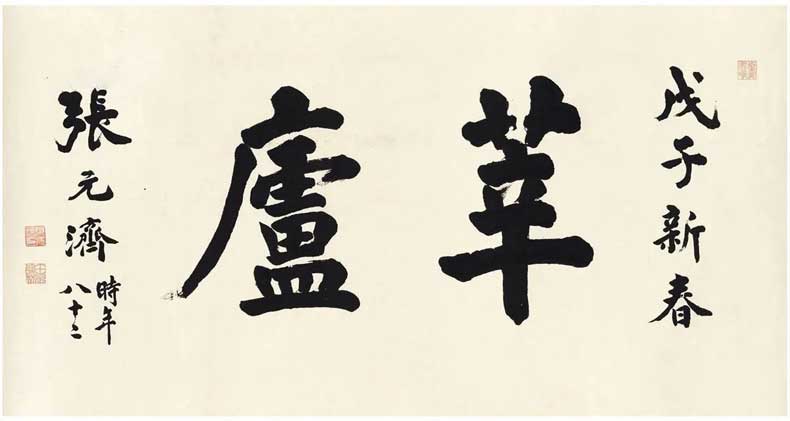 戊子新春
莘廬
張元濟
時年
八十二